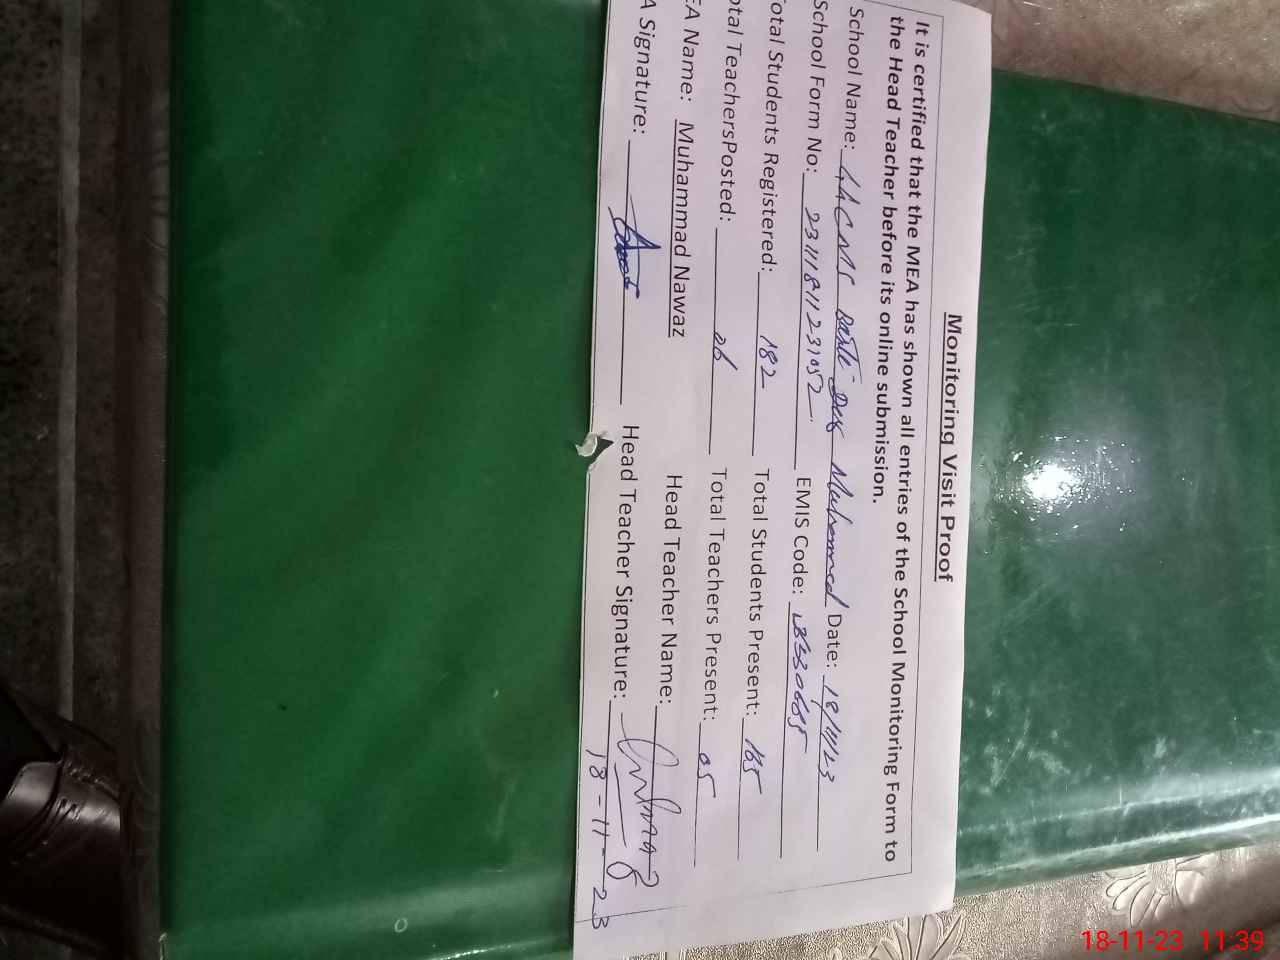 Monitoring Visit Proof
It is certified that the MEA has shown all entries of the School Monitoring Form to
the Head Teacher before its online submission.
School Name: Muhammad Date: 18/11/23
School Form No: 231118112231052 EMIS Code: 3330685
otal Students Registered: 182 Total Students Present: 165
otal TeachersPosted: 06 Total Teachers Present: 05
EA Name: Muhammad Nawaz Head Teacher Name:
A Signature: Head Teacher Signature:
18-11-23
18-11-23 11:39